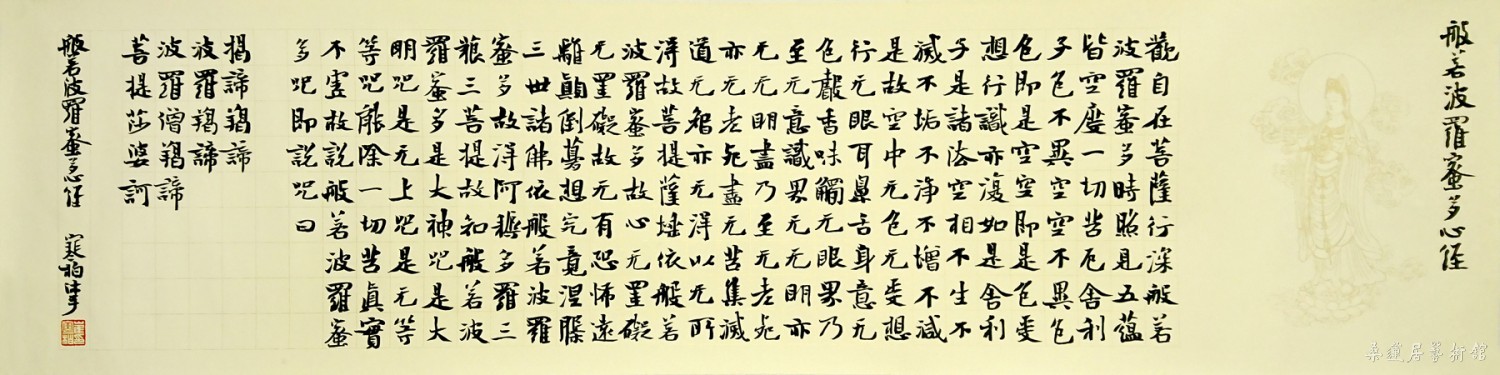 般若波羅蜜多心經
觀自在菩薩行深般若
波羅蜜多時照見五蘊
皆空度一切苦厄舍利
子色不異空空不異色
色即是空空即是色受
想行識亦復如是舍利
子是諸法空相不生不
滅不垢不淨不增不減
是故空中无色无受想
行无眼耳鼻舌身意无
色聲香味觸无眼界乃
至无意識界无无明亦
无无明盡乃至无老死
亦无老死盡无苦集滅
道无智亦无得以无所
得故菩提薩埵依般若
波羅蜜多故心无罣礙
无罣礙故无有恐怖遠
離顛倒夢想究竟涅槃
三世諸佛依般若波羅
蜜多故得阿耨多羅三
藐三菩提故知般若波
羅蜜多是大神咒是大
明咒是无上咒是无等
等咒能除一切苦真實
不虛故說般若波羅蜜
多咒即說咒曰
揭諦羯諦
波羅羯諦
波羅僧羯諦
菩提莎婆訶
般若波羅蜜多心經 沐手
桑蓮居藝術館